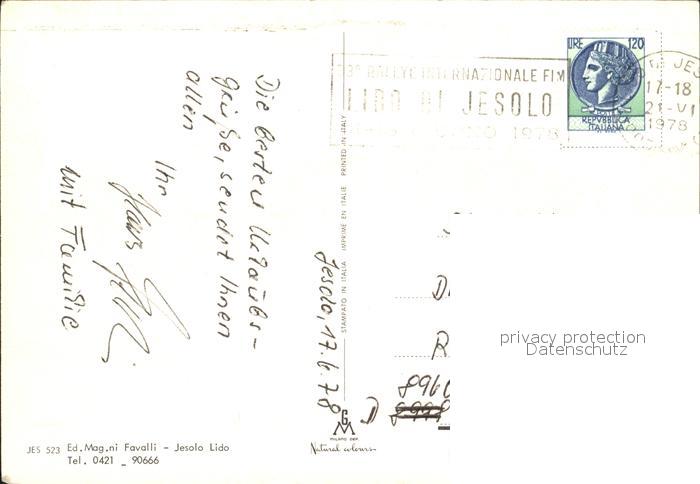 Die besten Urlaubs-
grüße, sendet Ihnen
allen
Ihr
Hans
mit Familie
Jesolo, 17.6.78
STAMPATO IN ITALIA IMPRIMÉ EN ITALIE PRINTED IN ITALY
RALLYE INTERNAZIONALE FIM
LIDO DI JESOLO
1978
LIRE 120
REPVBBLICA
ITALIANA
JES
17-18
21-VI
1978
D
R
8960
D
GM
MILANO DEP.
Natural colours
JES 523 Ed.Mag.ni Favalli - Jesolo Lido
Tel. 0421 _ 90666
privacy protection
Datenschutz